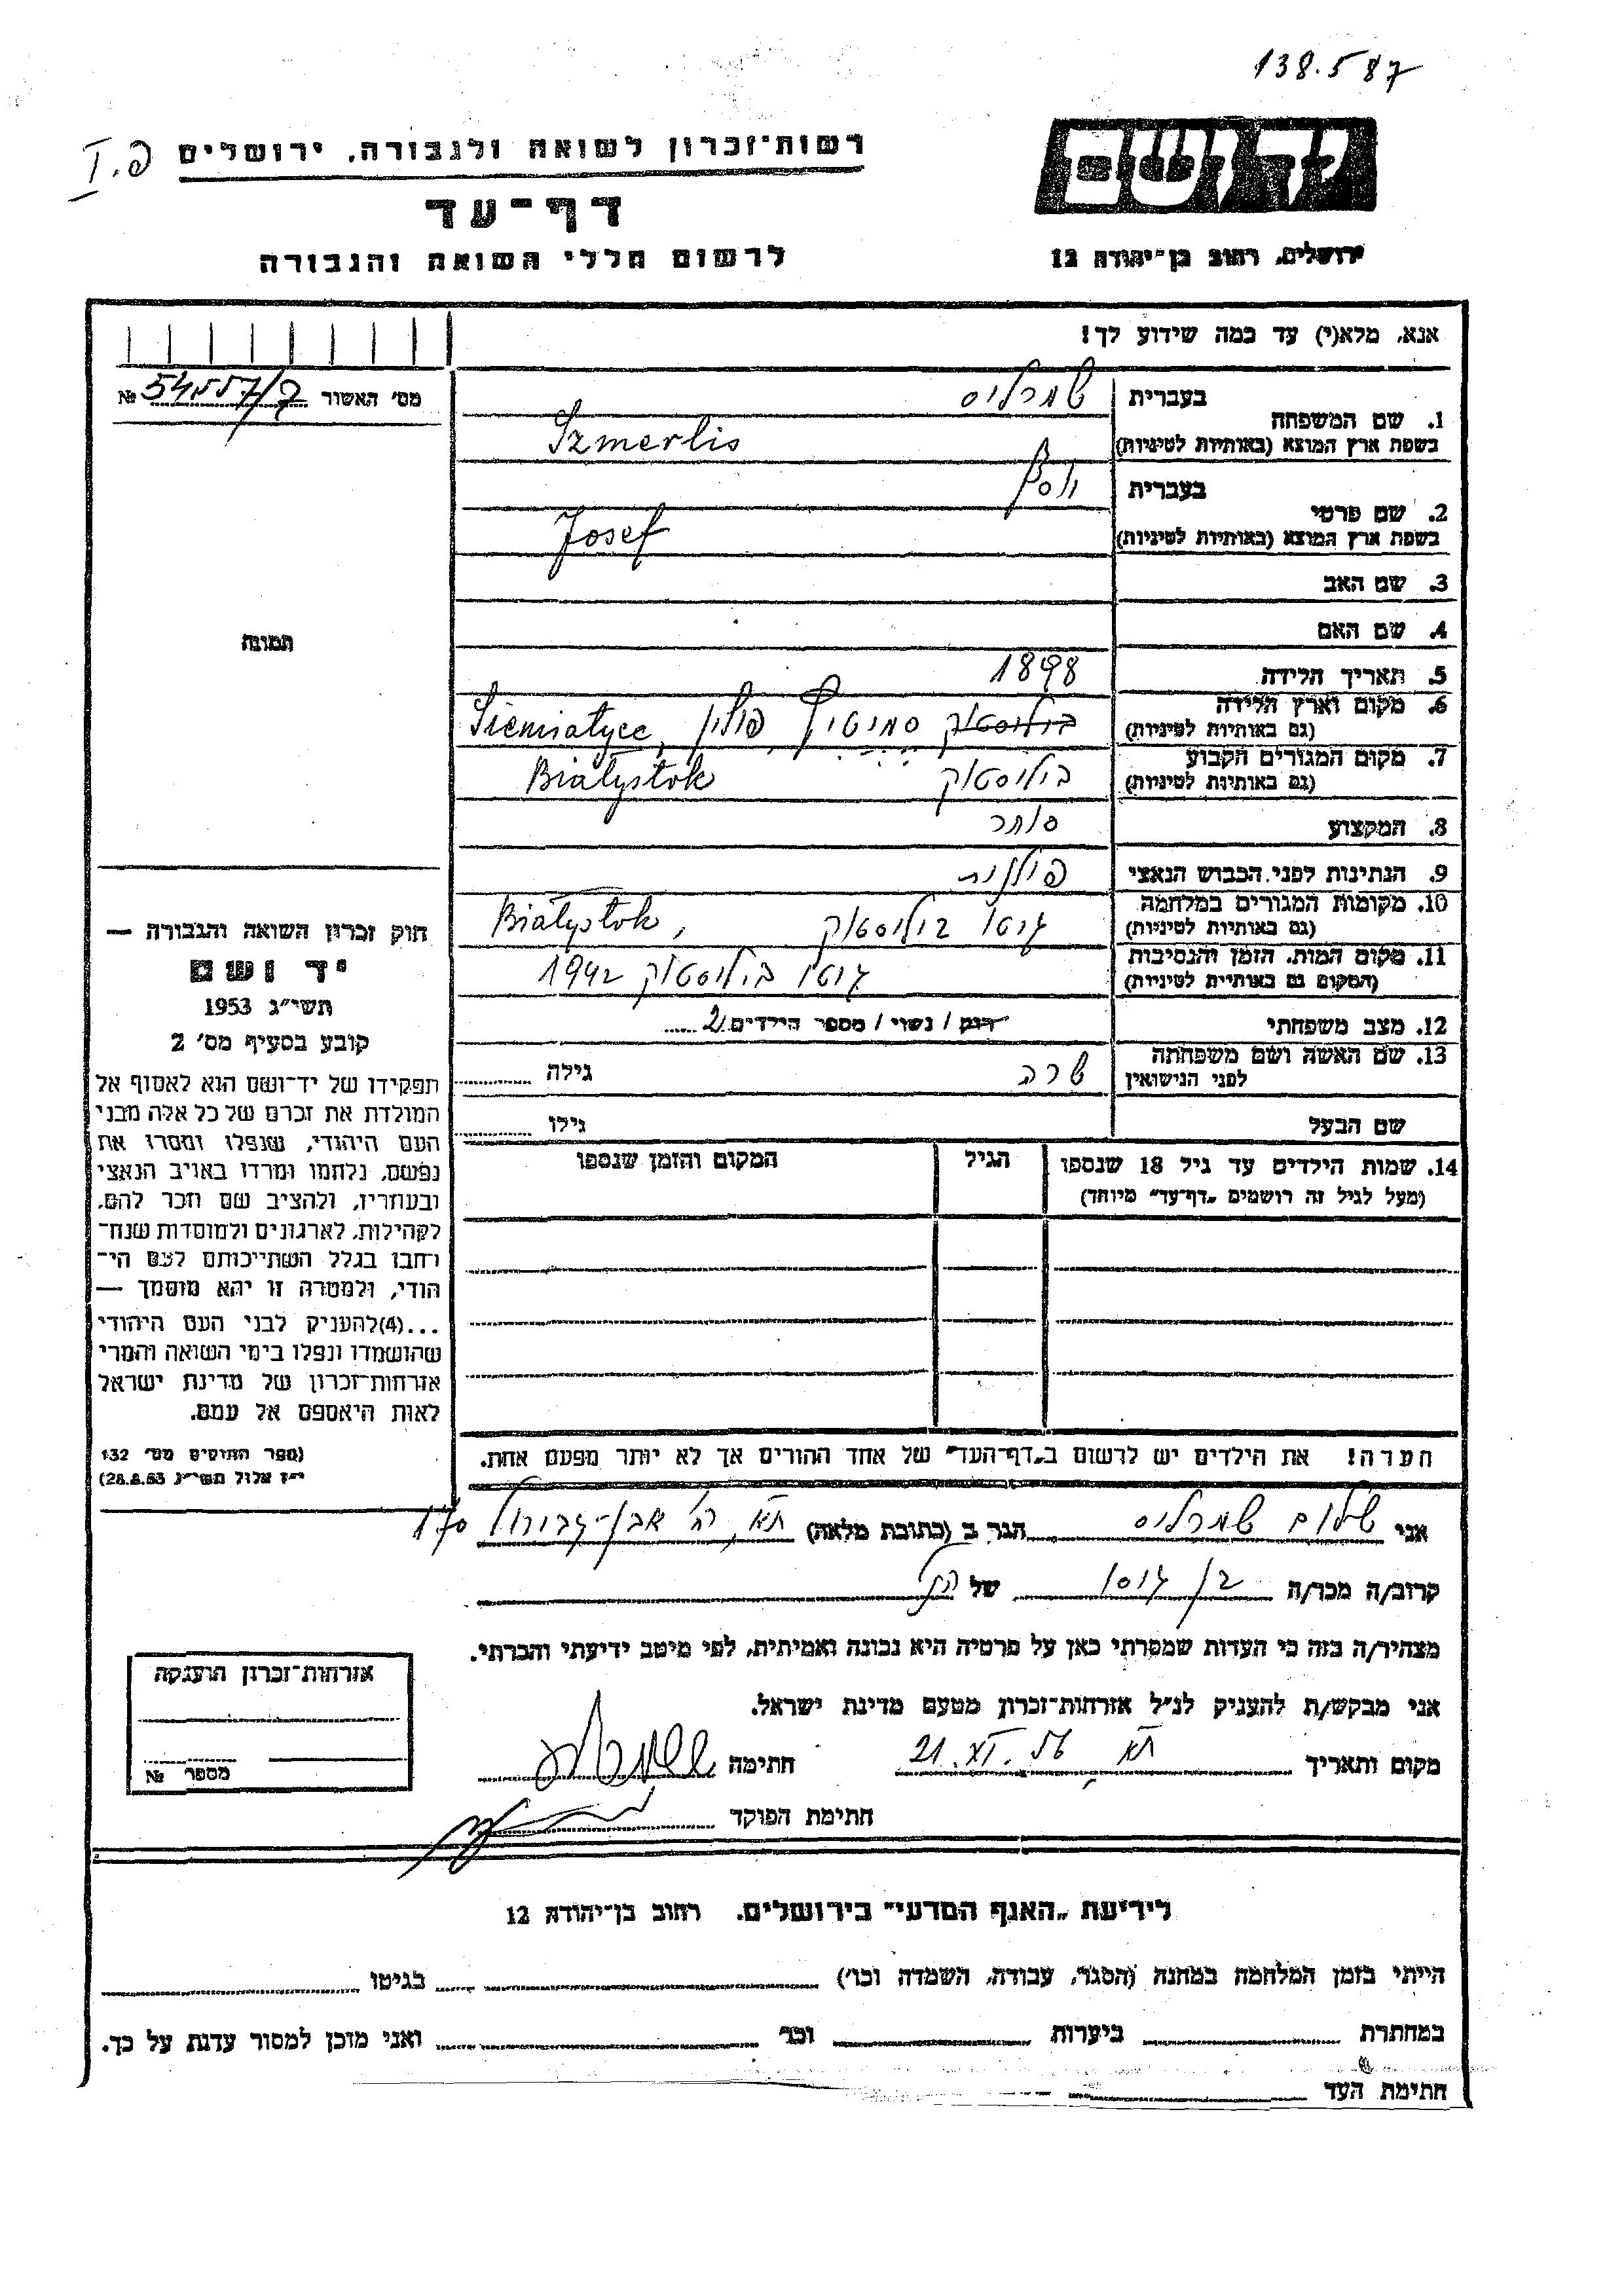 138.587
רשות־זכרון לשואה ולגבורה, ירושלים
פ. I
יד ושם
דף־עד
לרשום חללי השואה והגבורה
ירושלים, רחוב בן־יהודה 12
אנא, מלא(י) עד כמה שידוע לך!
מס' האשור № 54557/7
1. שם המשפחה
בעברית שמרליס
בשפת ארץ המוצא (באותיות לטיניות) Szmerlis
2. שם פרטי
בעברית יוסף
בשפת ארץ המוצא (באותיות לטיניות) Josef
3. שם האב
4. שם האם
תמונה
5. תאריך הלידה 1898
6. מקום וארץ הלידה
(גם באותיות לטיניות) ביליסטוק פולין Siemiatyce,
7. מקום המגורים הקבוע
(גם באותיות לטיניות) ביליסטוק Białystok
8. המקצוע סוחר
9. הנתינות לפני הכבוש הנאצי פולנית
10. מקומות המגורים במלחמה
(גם באותיות לטיניות) גיטו ביליסטוק, Białystok
11. מקום המות, הזמן והנסיבות
(המקום גם באותיות לטיניות) גיטו ביליסטוק 1942
12. מצב משפחתי רוק / נשוי / מספר הילדים 2
13. שם האשה ושם משפחתה
לפני הנישואין שרה גילה
שם הבעל גילו
14. שמות הילדים עד גיל 18 שנספו
(מעל לגיל זה רושמים „דף־עד” מיוחד)
הגיל
המקום והזמן שנספו
חוק זכרון השואה והגבורה —
יד ושם
תשי״ג 1953
קובע בסעיף מס' 2
תפקידו של יד־ושם הוא לאסוף אל
המולדת את זכרם של כל אלה מבני
העם היהודי, שנפלו ומסרו את
נפשם, נלחמו ומרדו באויב הנאצי
ובעוזריו, ולהציב שם וזכר להם,
לקהילות, לארגונים ולמוסדות שנח־
רבו בגלל השתייכותם לעם הי־
הודי, ולמטרה זו יהא מוסמך —
...(4)להעניק לבני העם היהודי
שהושמדו ונפלו בימי השואה והמרי
אזרחות־זכרון של מדינת ישראל
לאות היאספם אל עמם.
(ספר החוקים מס' 132
י״ז אלול תשי״ג 28.8.53)
הערה! את הילדים יש לרשום ב„דף־העד” של אחד ההורים אך לא יותר מפעם אחת.
אני שלום שמרליס הגר ב (כתובת מלאה) ת״א, רח' אבן־גבירול 170
קרוב/ה מכר/ה בן גיסו של הנ״ל
מצהיר/ה בזה כי העדות שמסרתי כאן על פרטיה היא נכונה ואמיתית, לפי מיטב ידיעתי והכרתי.
אני מבקש/ת להעניק לנ״ל אזרחות־זכרון מטעם מדינת ישראל.
מקום ותאריך ת״א 21.XI.56 חתימה
חתימת הפוקד
אזרחות־זכרון הוענקה
מספר №
לידיעת „האגף המדעי” בירושלים, רחוב בן־יהודה 12
הייתי בזמן המלחמה במחנה (הסגר, עבודה, השמדה וכו') בגיטו
במחתרת ביערות וכו' ואני מוכן למסור עדות על כך.
חתימת העד